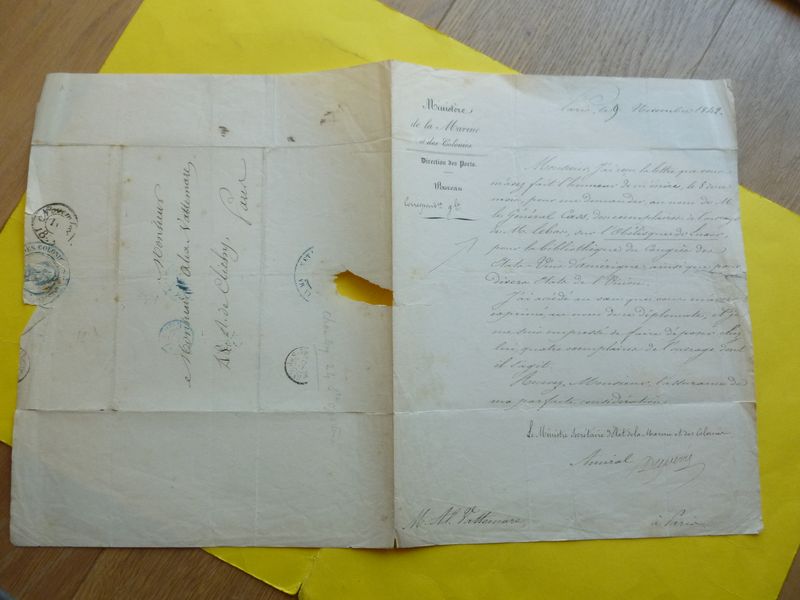 Monsieur
Monsieur Alex. Vattemare
Rue de Clichy,
Paris
Ministère
de la Marine
et des Colonies
Direction des Ports.
Bureau
Paris, le 9 Novembre 1842.
Monsieur, J'ai reçu la lettre que vous
m'avez fait l'honneur de m'écrire, le 8 de ce
mois, pour me demander, au nom de M.
le Général Cass, des exemplaires de l'ouvrage
de M. Lebas, sur l'Obélisque de Luxor,
pour la bibliothèque du Congrès des
États-Unis d'Amérique, ainsi que pour
divers États de l'Union.
J'ai accédé au vœu que vous m'avez
exprimé au nom de ce diplomate, et je
me suis empressé de faire déposer chez
lui quatre exemplaires de l'ouvrage dont
il s'agit.
Recevez, Monsieur, l'assurance de
ma parfaite considération.
Le Ministre Secrétaire d'État de la Marine et des Colonies
Amiral Duperré
M. Al. Vattemare
à Paris